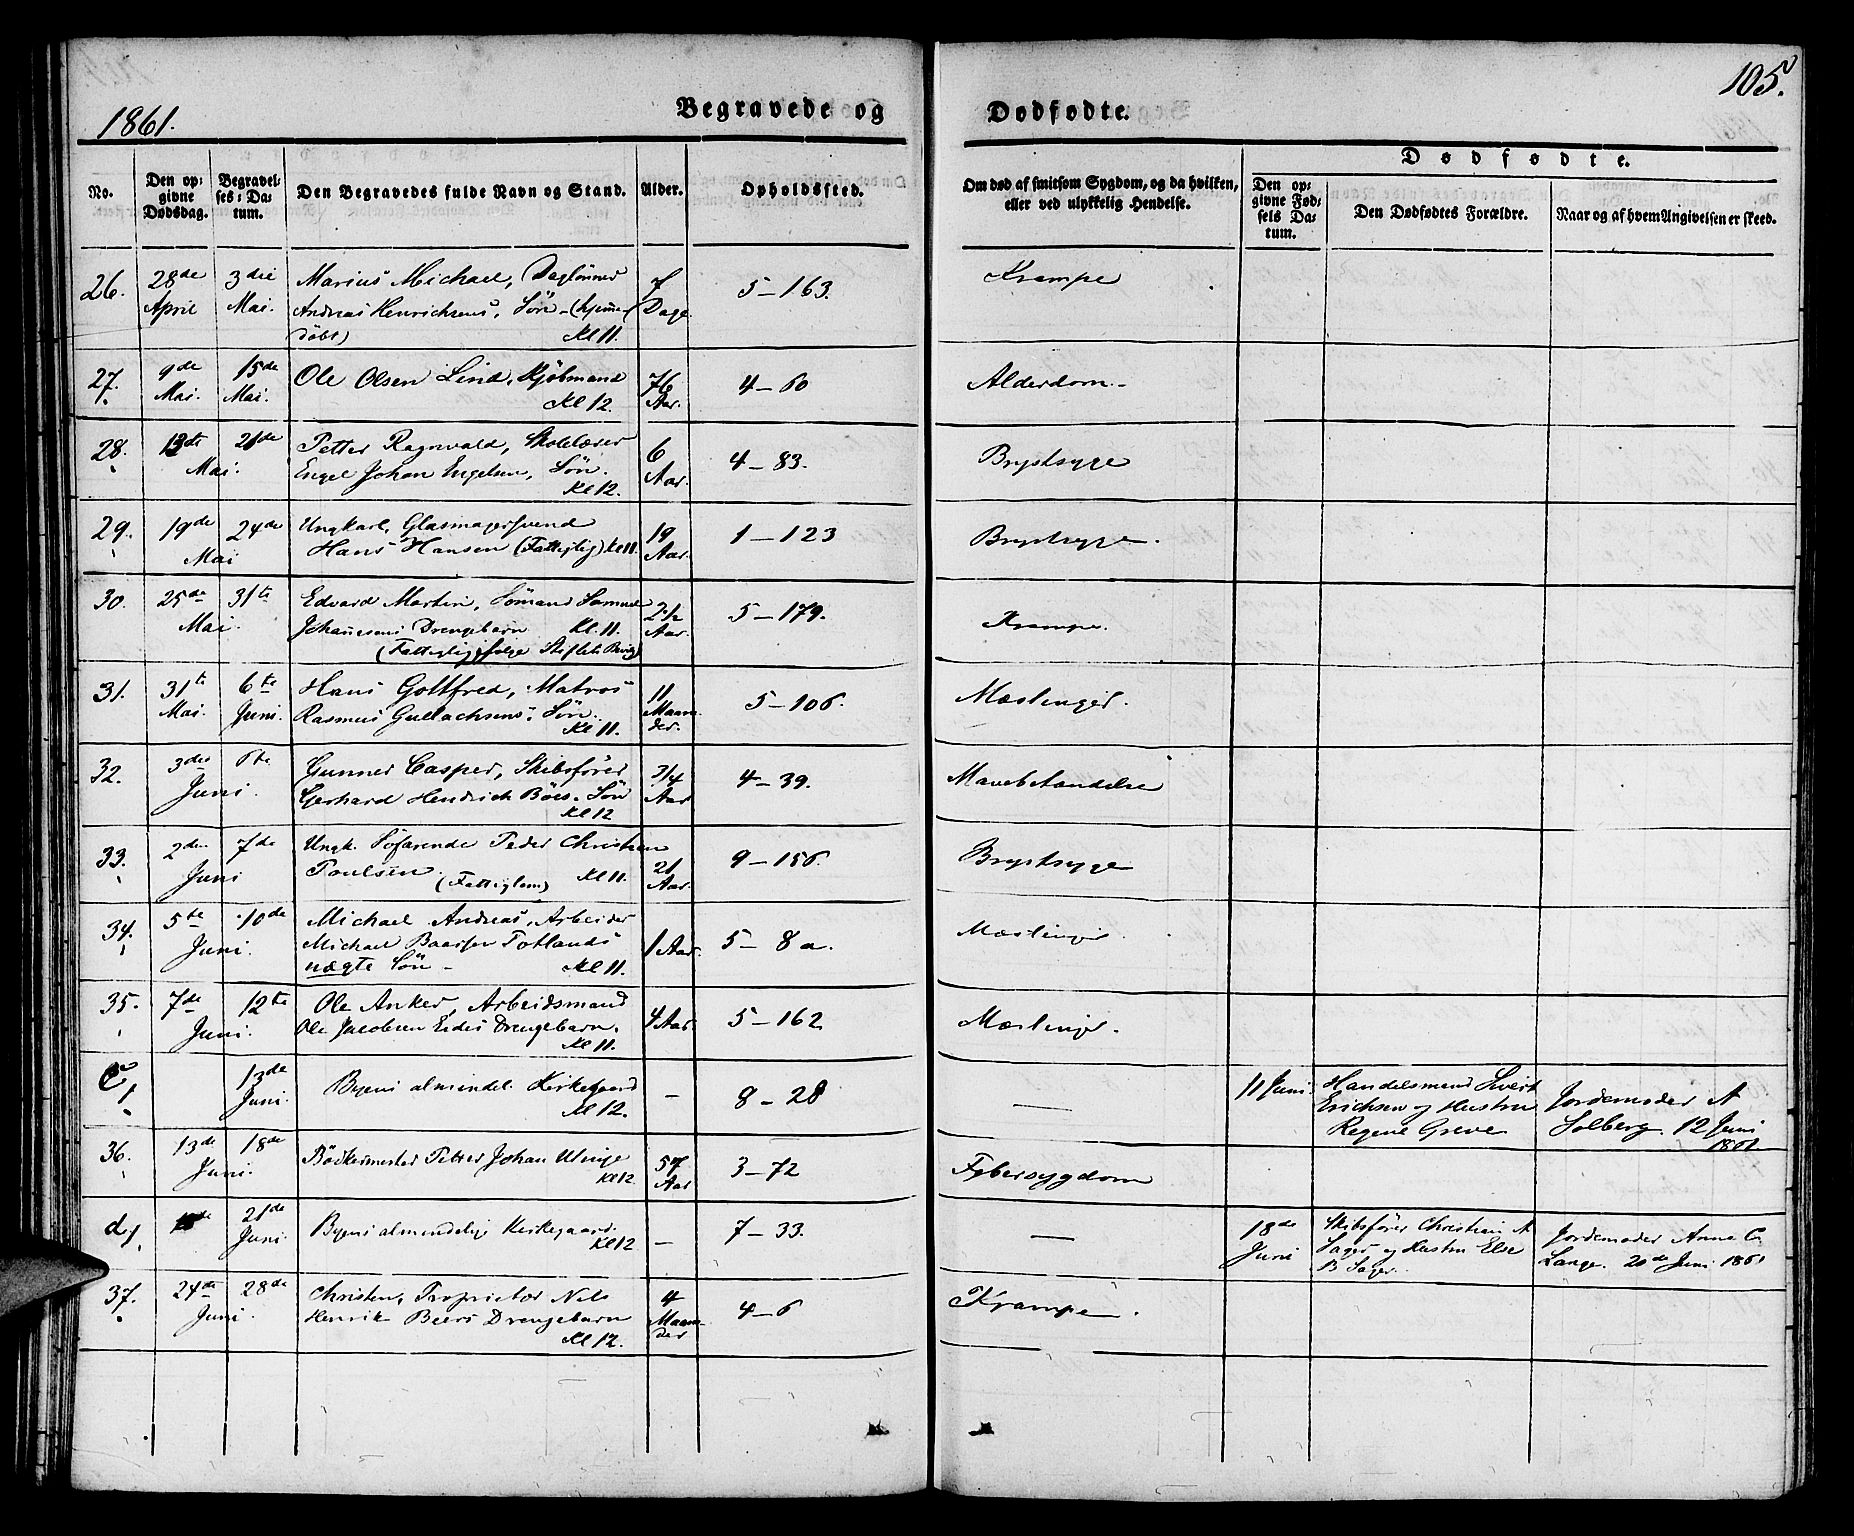 1861.
Begravede og
Dødfødte.
105.
No.
Den opgivne Dødsdag.
Begravelses-Datum.
Den Begravedes fulde Navn og Stand.
Alder.
Opholdssted.
Om død af smitsom Sygdom, og da hvilken, eller ved ulykkelig Hendelse.
Dødfødte.
Den opgivne Fødsels Datum.
Den Dødfødtes Forældre.
Naar og af hvem Angivelsen er skeed.
26. 28de April 3die Mai. Marius Michael, Daglønner 7 Dage 5-163. Krampe
Andreas Henrichsens, Søn-(hjemme-
døbt) Kl 11.
27. 9de Mai. 15de Mai. Ole Olsen Lind, Kjøbmand 76 Aar. 4-60 Alderdom-
Kl 12.
28. 13de 21de Mai. Petter Ragnvald, Skolelærer 6 Aar. 4-83. Brystsyge
Engel Johan Engelsen, Søn.
Kl 12.
29. 19de 24de Mai Ungkarl, Glasmagersvend 19 Aar. 1-123 Brystsyge.
Hans Hansen (Fattiglig) Kl 11.
30. 25de 31te Mai. Edvard Martin, Sømand Samuel 2½ Aar. 5-179. Krampe.
Johannesens Drengebarn Kl. 11.
(Fattiglig ifølge Stiftets )
31. 31te Mai. 6te Juni. Hans Gottfred, Matros 11 Maaneder. 5-106. Mæslinger.
Rasmus Gullachsens Søn.
Kl 11.
32. 3die 6te Juni. Gunner Casper, Skibsfører 3/4 Aar 4-39. Mavebetændelse
Gerhard Hendrich Böes Søn
Kl 12
33. 2den 7de Juni Ungk. Søfarende Peder Christian 21 Aar. 9-156. Brystsyge
Poulsen. (Fattiglem) Kl 11.
34. 5te 10de Juni. Michael Andreas, Arbeider 1 Aar. 5-8a. Mæslinger.
Michael Baarsen Totlands
uægte Søn- Kl 11.
35. 7de 12te Juni. Ole Anker, Arbeidsmand 4 Aar. 5-162 Mæslinger.
Ole Jacobsen Eides Drengebarn.
Kl 11.
C, 13de Juni. Byens almindel. Kirkegaard - 8-28 — 11 Juni. Handelsmand Sivert Jordemoder A
Kl 12. Erichsen og Hustru Solberg. 12 Juni
Regene Greve 1861.
36. 13de 18de Juni. Bødkermester Petter Johan Utinge 57 Aar 3-72 Febersygdom
Kl 12
d, 21de Juni. Byens almindelige Kirkegaard. - 7-33. — 18de Juni Skibsfører Christian A Jordemoder Anne C
Kl 12 Sager og Hustru Else Lange. 20de Juni 1861
B Sager.
37. 24de 28de Juni. Christen, Proprietær Nils 4 Maaneder 4-6 Krampe.
Henrik Beers Drengebarn
Kl 12.